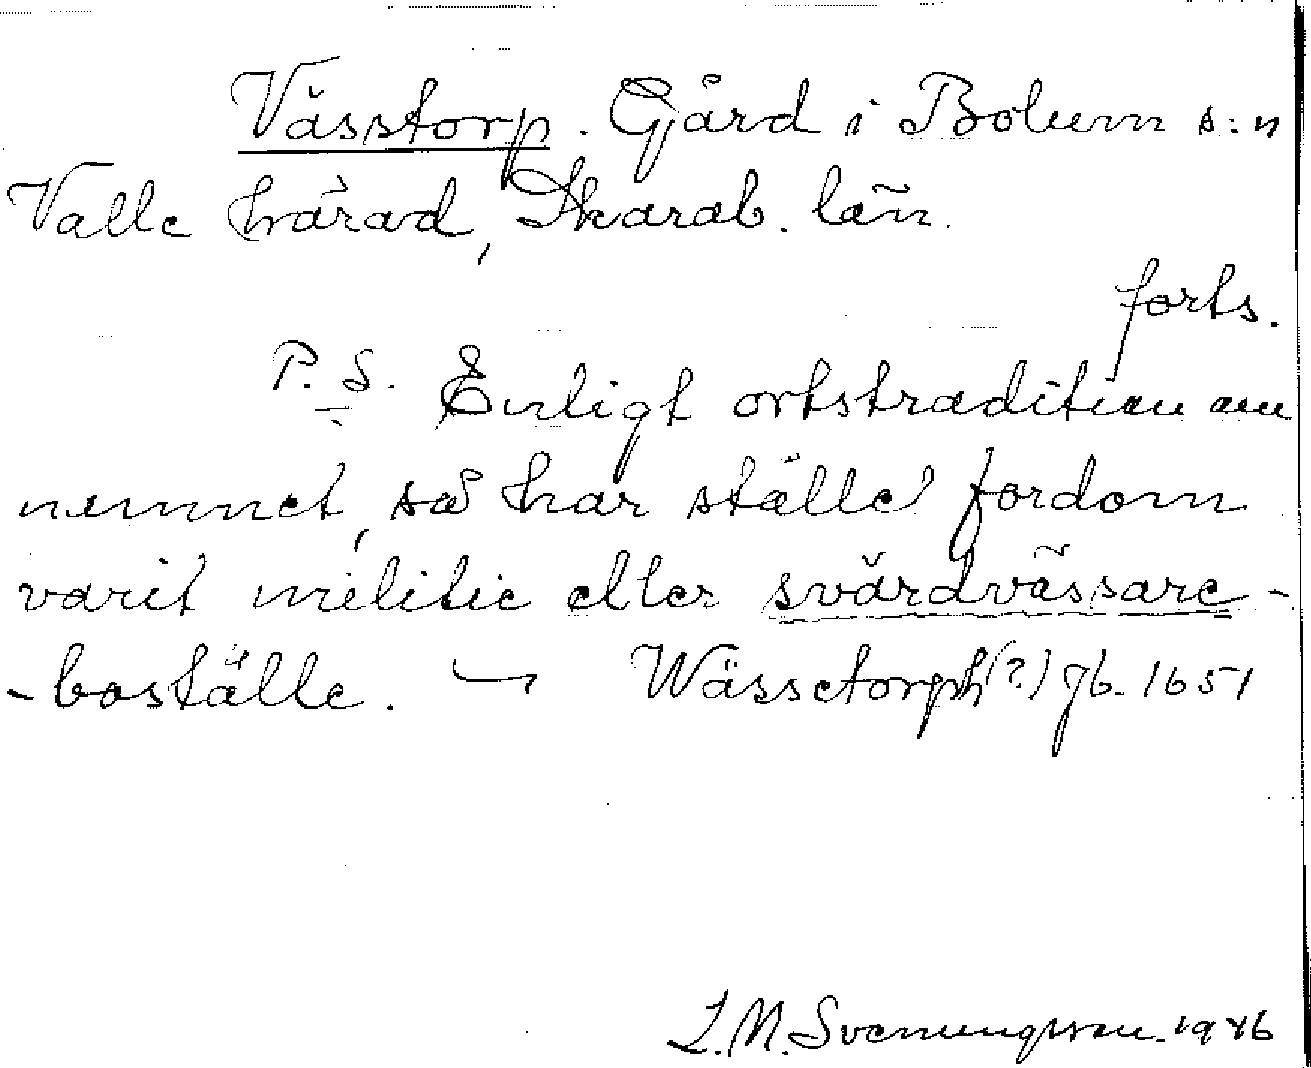 Vässtorp. Gård i Bolum s:n
Valle härad, Skarab. län.
forts.
P.S. Enligt ortstradition om
namnet, så har ställe' fordom
varit militie eller svärdvässare-
-boställe. Wässetorph(?) Jb. 1651
L.M. Svenungsson 1946